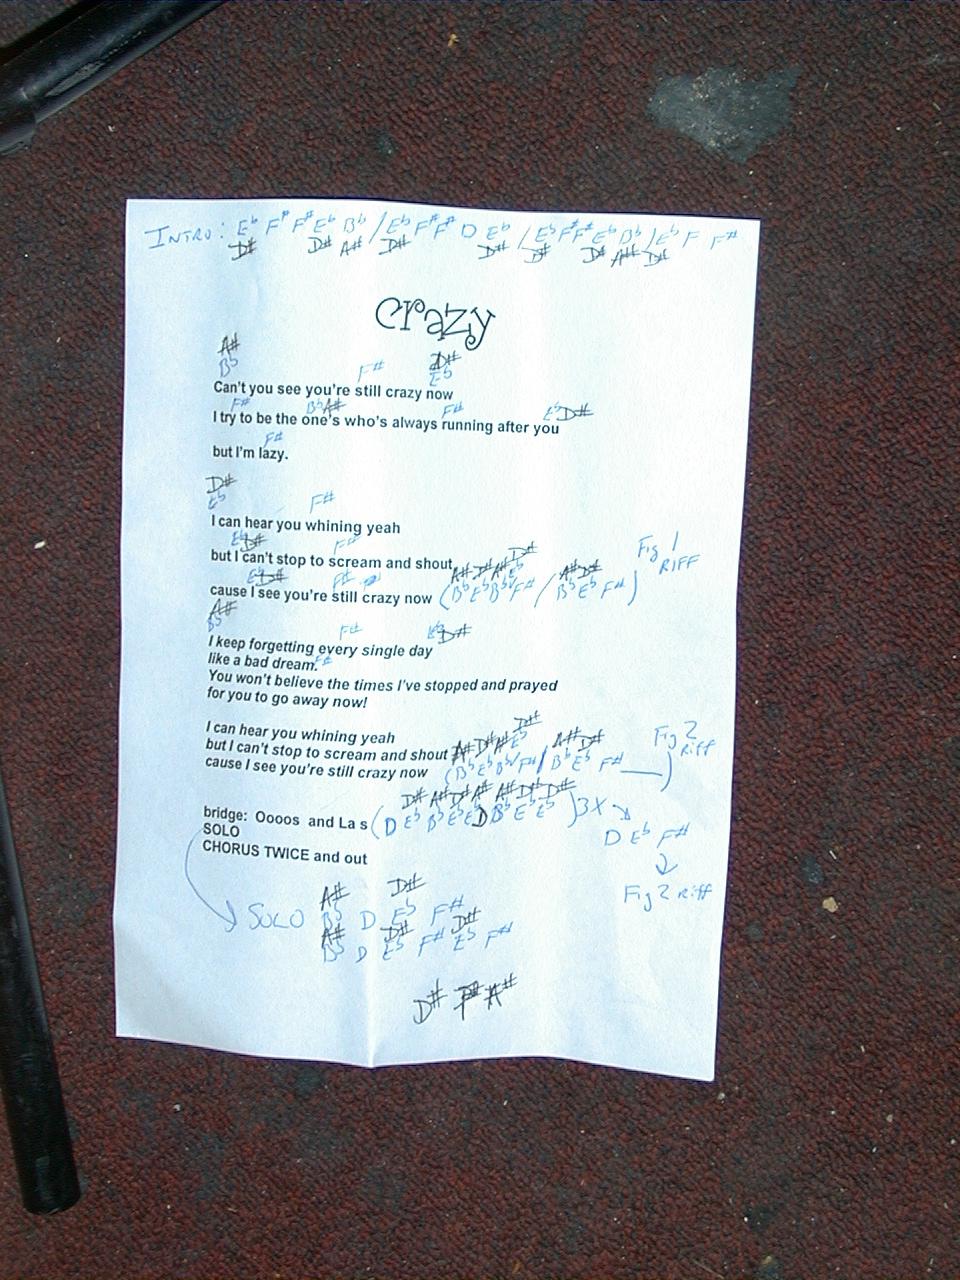 INTRO: Eb F# F# Eb Bb / Eb F# F# D Eb / Eb F# F# Eb Bb / Eb F F#
D# D# A# D# D# D# D# A# D#
crazy
A# D#
Bb F# Eb
Can't you see you're still crazy now
F# Bb A# F# Eb D#
I try to be the one's who's always running after you
F#
but I'm lazy.
D#
Eb F#
I can hear you whining yeah
Eb D# F#
but I can't stop to scream and shout
D# Fig 1
A# D# A# Eb A# D# RIFF
Eb D# F#
cause I see you're still crazy now (Bb Eb Bb F# / Bb Eb F#)
A#
Bb F# Eb D#
I keep forgetting every single day
like a bad dream. F#
You won't believe the times I've stopped and prayed
for you to go away now!
D#
I can hear you whining yeah Fig 2
but I can't stop to scream and shout A# D# A# Eb A# D# Riff
cause I see you're still crazy now (Bb Eb Bb F# / Bb Eb F# )
D# A# D# A# A# D# D#
bridge: Oooos and La s (D Eb Bb Eb D Bb Eb Eb) 3X
SOLO D Eb F#
CHORUS TWICE and out
Fig 2 riff
A# D#
SOLO Bb D Eb F#
A# D# D#
Bb D Eb F# Eb F#
D# F# A#